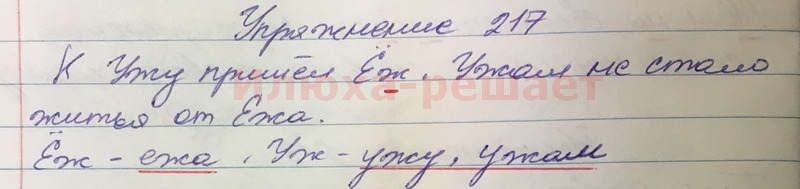 Упражнение 217
К Ужу пришёл Ёж. Ужам не стало
илюха-решает
житья от Ежа.
Ёж - ежа, Уж - ужу, ужам